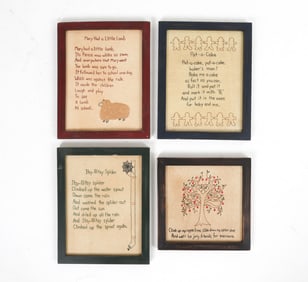 Mary Had a Little Lamb
Mary had a little lamb,
Its fleece was white as snow,
And everywhere that Mary went
The lamb was sure to go.
It followed her to school one day,
Which was against the rule.
It made the children
Laugh and play
To see
a lamb
At school.
Pat-a-Cake
Pat-a-cake, pat-a-cake,
baker's man!
Bake me a cake
as fast as you can.
Roll it and pat it
and mark it with "B"
And put it in the oven
for baby and me.
Itsy-Bitsy Spider
Itsy-Bitsy spider
Climbed up the water spout
Down came the rain
And washed the spider out
Out came the sun
And dried up all the rain
And Itsy-Bitsy spider
Climbed up the spout again.
Climb up my apple tree, slide down my cellar door
And we'll be jolly friends for evermore.